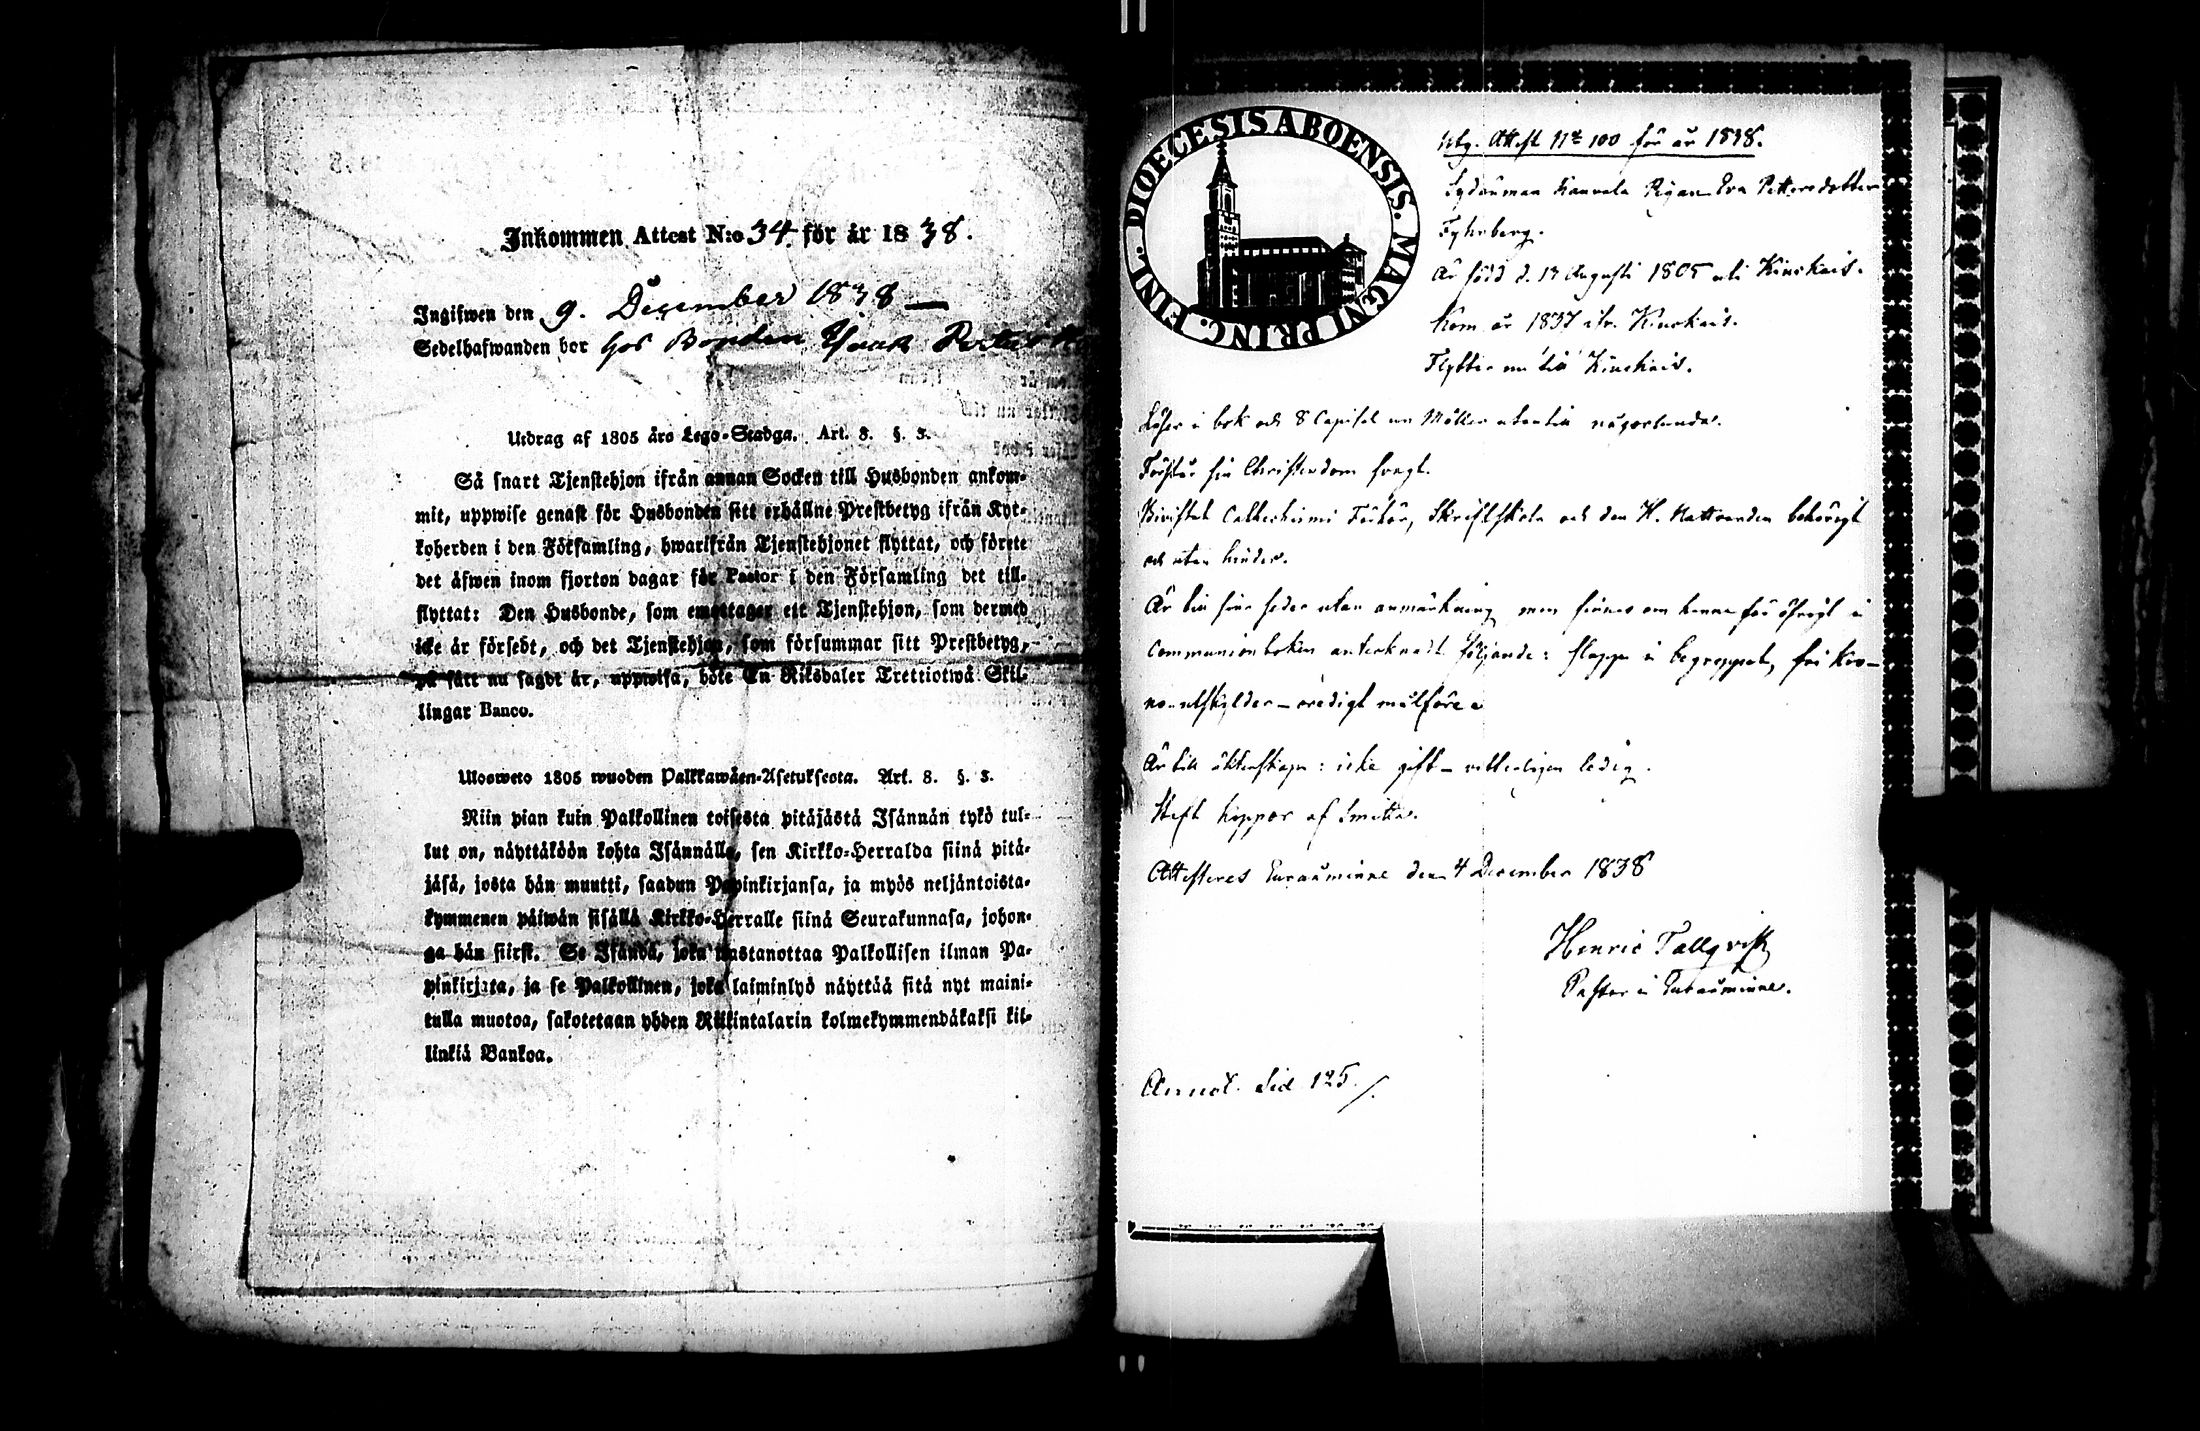 Inkommen Attest N:o 34. för år 1838.
Ingifwen den 9. December 1838 —
Sedelhafwanden bor hos Bonden Isaak
Utdrag af 1805 års Lego-Stadga. Art. 8. §. 3.
Så snart Tjenstehjon ifrån annan Socken till Husbonden ankom-
mit, uppwise genast för Husbonden sitt erhållne Prestbetyg ifrån Kyr-
koherden i den Församling, hwarifrån Tjenstehjonet flyttat, och förete
det äfwen inom fjorton dagar för Pastor i den Församling det till-
flyttat: Den Husbonde, som emottager ett Tjenstehjon, som dermed
icke är försedt, och det Tjenstehjon, som försummar sitt Prestbetyg,
på sätt nu sagdt är, uppwisa, böte En Riksdaler Trettiotwå Skil-
lingar Banco.
Ulosweto 1805 wuoden Palkkawäen-Asetuksesta. Art. 8. §. 3.
Niin pian kuin Palkollinen toisesta pitäjästä Isännän tykö tul-
lut on, näyttäköön kohta Isännälle, sen Kirkko-Herralda siinä pitä-
jäsä, josta hän muutti, saadun Papinkirjansa, ja myös neljäntoista-
kymmenen päiwän sisällä Kirkko-Herralle siinä Seurakunnasa, johon-
ga hän siirst. Se Isändä, joka wastanottaa Palkollisen ilman Pa-
pinkirjata, ja se Palkollinen, joka laiminlyö näyttää sitä nyt maini-
tulla muotoa, sakotetaan yhden Riikintalarin kolmekymmendäkaksi kil-
linkiä Bankoa.
DIOECESIS ABOENSIS. MAGNI PRINC. FINL.
Utg. Attest N:o 100 för år 1838.
Sydänmaa Kannola Pigan Eva Pettersdotter
Fyhrberg.
Är född d. 13 Augusti 1805 uti Kiukais.
Kom år 1837 ifr. Kiukais.
Flyttar nu till Kiukais.
Läser i bok och 8 Capitel un Möller utantill någorlunda.
Förstår sin Christendom svagt.
Bivistat Catechismi Förhör, Skriftskola och den H. Nattvarden behörigt
och utan hinder.
Är till sina seder utan anmärkning men finnes om henne för öfrigt i
Communionboken antecknadt följande: slapp i begreppet, fri kro-
noutskylder — oredigt målföre
Är till äktenskap: icke gift — vitterligen ledig.
Haft koppor af Smitta.
Attesteres Euraåminne den 4 December 1838
Henric Tallqvist
Pastor i Euraåminne.
Annot. Sid 125.